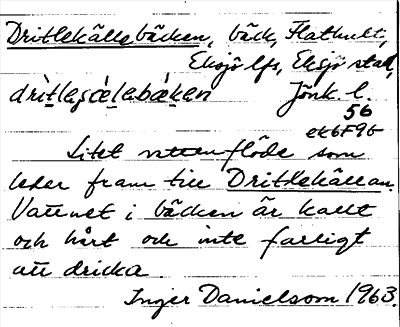 Dritlekälle bäcken, bäck, Flathult,
Eksjö lfs, Eksjö stad,
Jönk. l.
56
ek6F9b
Litet vattenflöde som
leder fram till Dritlekällan.
Vattnet i bäcken är kallt
och hårt och inte farligt
att dricka.
Inger Danielsson 1963.